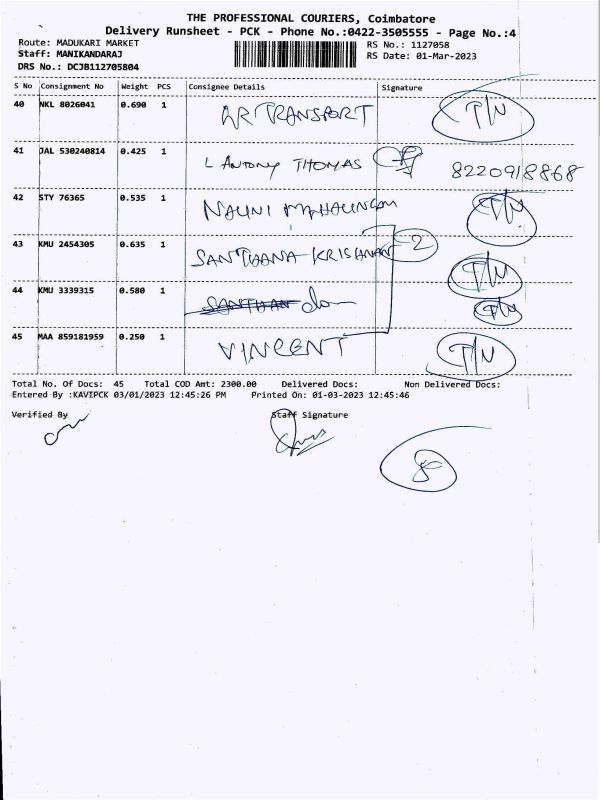 THE PROFESSIONAL COURIERS, Coimbatore
Delivery Runsheet - PCK - Phone No.:0422-3505555 - Page No.:4
Route: MADUKARI MARKET
Staff: MANIKANDARAJ
DRS No.: DCJB112705804
RS No.: 1127058
RS Date: 01-Mar-2023
S No Consignment No Weight PCS Consignee Details Signature
40 NKL 8026041 0.690 1 AR TRANSPORT T/N
41 JAL 530240814 0.425 1 L ANTONY THOMAS 8220918868
42 STY 76365 0.535 1 NALINI MAHALINGAM T/N
43 KMU 2454305 0.635 1 SANTHANA KRISHNAN 2 T/N
44 KMU 3339315 0.580 1 do T/N
45 MAA 859181959 0.250 1 VINCENT T/N
Total No. Of Docs: 45 Total COD Amt: 2300.00 Delivered Docs: Non Delivered Docs:
Entered By :KAVIPCK 03/01/2023 12:45:26 PM Printed On: 01-03-2023 12:45:46
Verified By Staff Signature